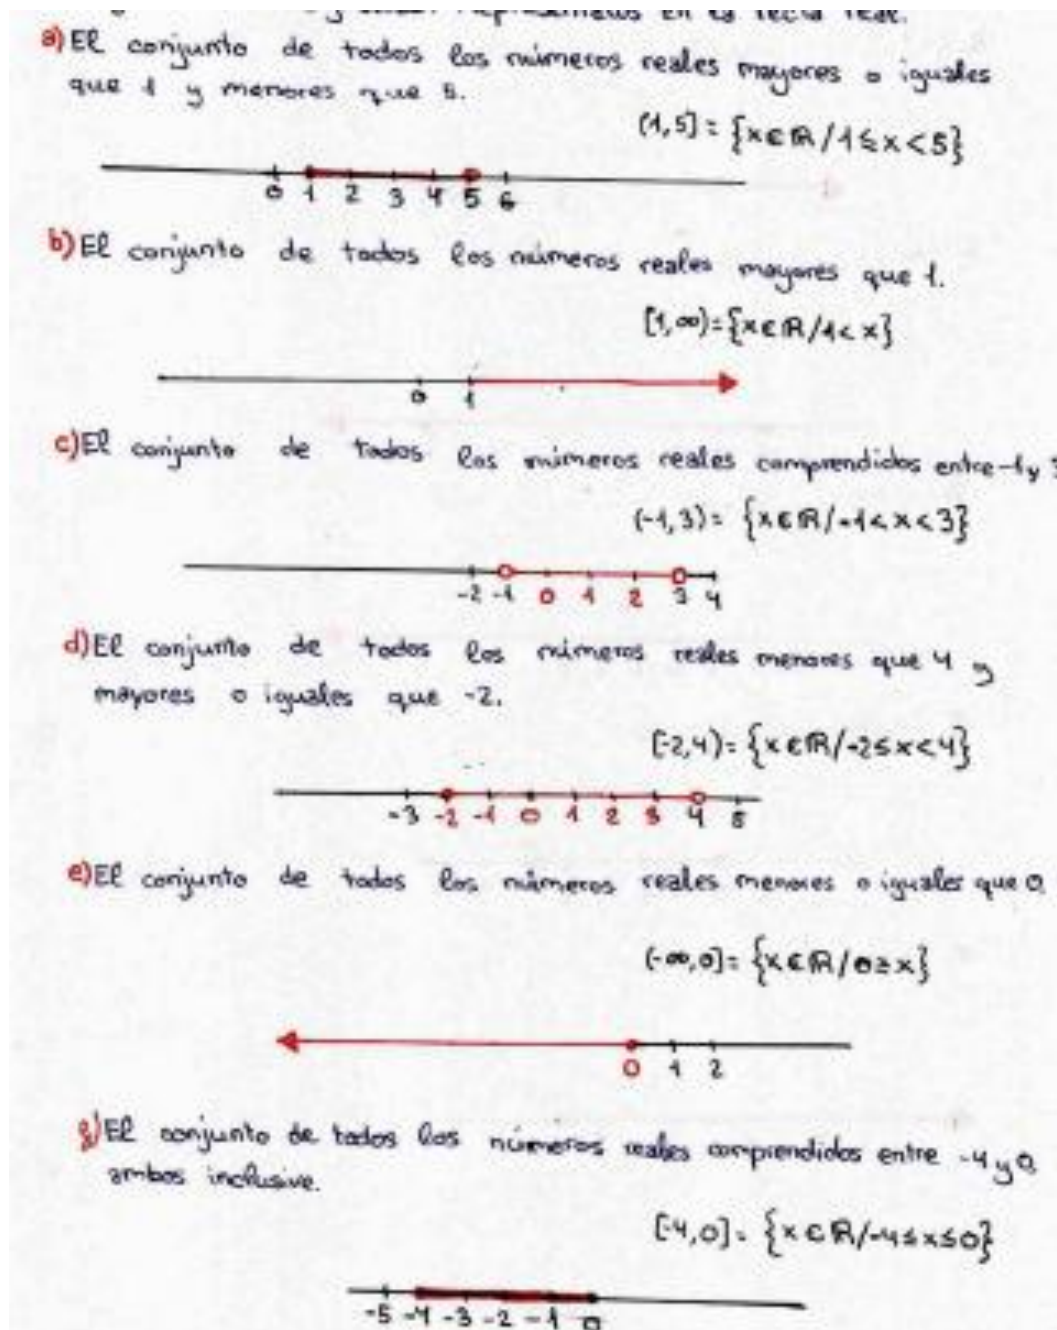 representalos en la recta real.
a) El conjunto de todos los números reales mayores o iguales
que 1 y menores que 5.
(1,5] = {x∈ℝ/1≤x<5}
0 1 2 3 4 5 6
b) El conjunto de todos los números reales mayores que 1.
[1,∞)={x∈ℝ/1<x}
0 1
c) El conjunto de todos los números reales comprendidos entre -1 y 3
(-1,3)= {x∈ℝ/-1<x<3}
-2 -1 0 1 2 3 4
d) El conjunto de todos los números reales menores que 4 y
mayores o iguales que -2.
[-2,4)= {x∈ℝ/-2≤x<4}
-3 -2 -1 0 1 2 3 4 5
e) El conjunto de todos los números reales menores o iguales que 0
(-∞,0]= {x∈ℝ/0≥x}
0 1 2
El conjunto de todos los números reales comprendidos entre -4 y 0,
ambos inclusive.
[-4,0]= {x∈ℝ/-4≤x≤0}
-5 -4 -3 -2 -1 0